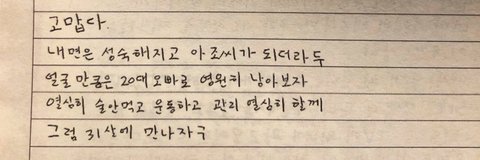 고맙다.
내면은 성숙해지고 아조씨가 되더라두
얼굴 만큼은 20대 오빠로 영원히 남아보자
열심히 술안먹고 운동하고 관리 열심히 할께
그럼 31살에 만나자구